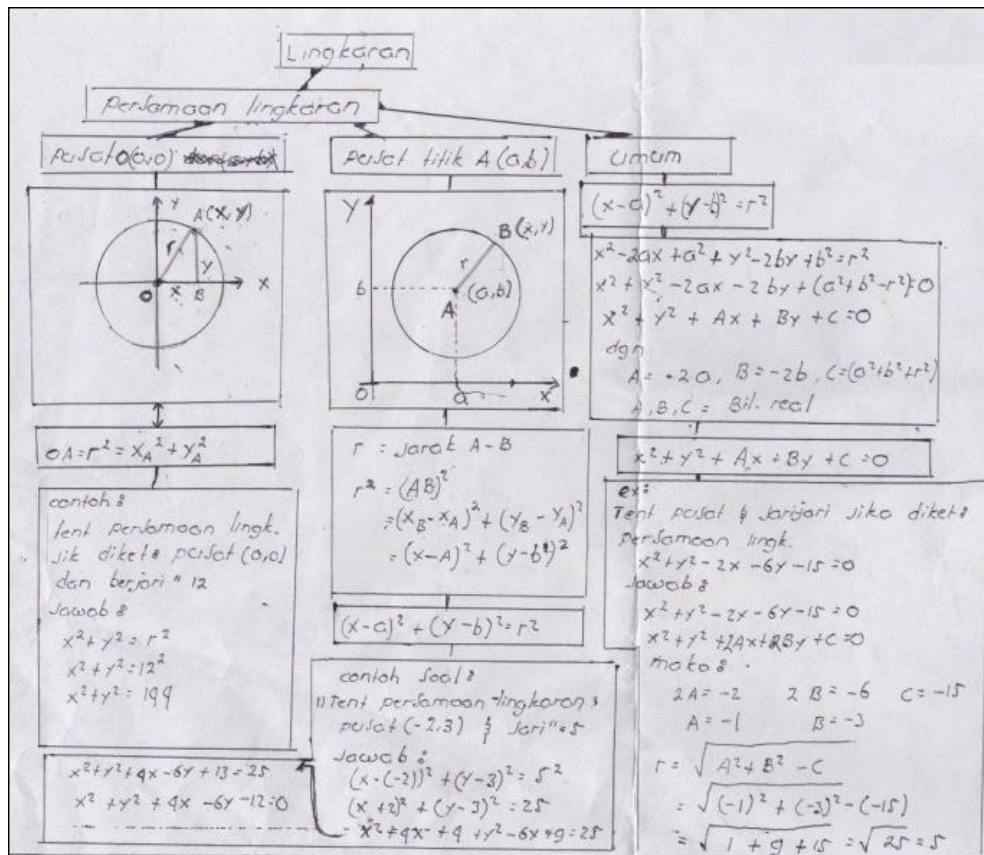 Lingkaran
Persamaan lingkaran
Pusat O(0,0)
Pusat titik A(a,b)
umum
Y
A(X,Y)
r
y
O
x
B
X
OA = r² = X_A² + Y_A²
contoh :
tent persamaan lingk.
jik diket : pusat (0,0)
dan berjari " 12
Jawab :
x² + y² = r²
x² + y² = 12²
x² + y² = 144
Y
B(x,y)
r
b
(a,b)
A
O
a
X
r = jarak A - B
r² = (AB)²
= (X_B - X_A)² + (Y_B - Y_A)²
= (x - A)² + (y - b)²
(x - a)² + (y - b)² = r²
contoh soal :
1) Tent persamaan lingkaran :
pusat (-2,3) & jari" = 5
Jawab :
(x - (-2))² + (y - 3)² = 5²
(x + 2)² + (y - 3)² = 25
x² + 4x + 4 + y² - 6x + 9 = 25
x² + y² + 4x - 6y + 13 = 25
x² + y² + 4x - 6y - 12 = 0
(x - a)² + (y - b)² = r²
x² - 2ax + a² + y² - 2by + b² = r²
x² + x² - 2ax - 2by + (a² + b² - r²) = 0
x² + y² + Ax + By + C = 0
dgn
A = -2a, B = -2b, C = (a² + b² + r²)
A, B, C = Bil. real
x² + y² + Ax + By + C = 0
ex :
Tent pusat & jarijari jika diket :
persamaan lingk.
x² + y² - 2x - 6y - 15 = 0
Jawab :
x² + y² - 2x - 6y - 15 = 0
x² + y² + 2Ax + 2By + C = 0
maka :
2A = -2 2B = -6 C = -15
A = -1 B = -3
r = √(A² + B² - C)
= √((-1)² + (-3)² - (-15))
= √(1 + 9 + 15) = √25 = 5